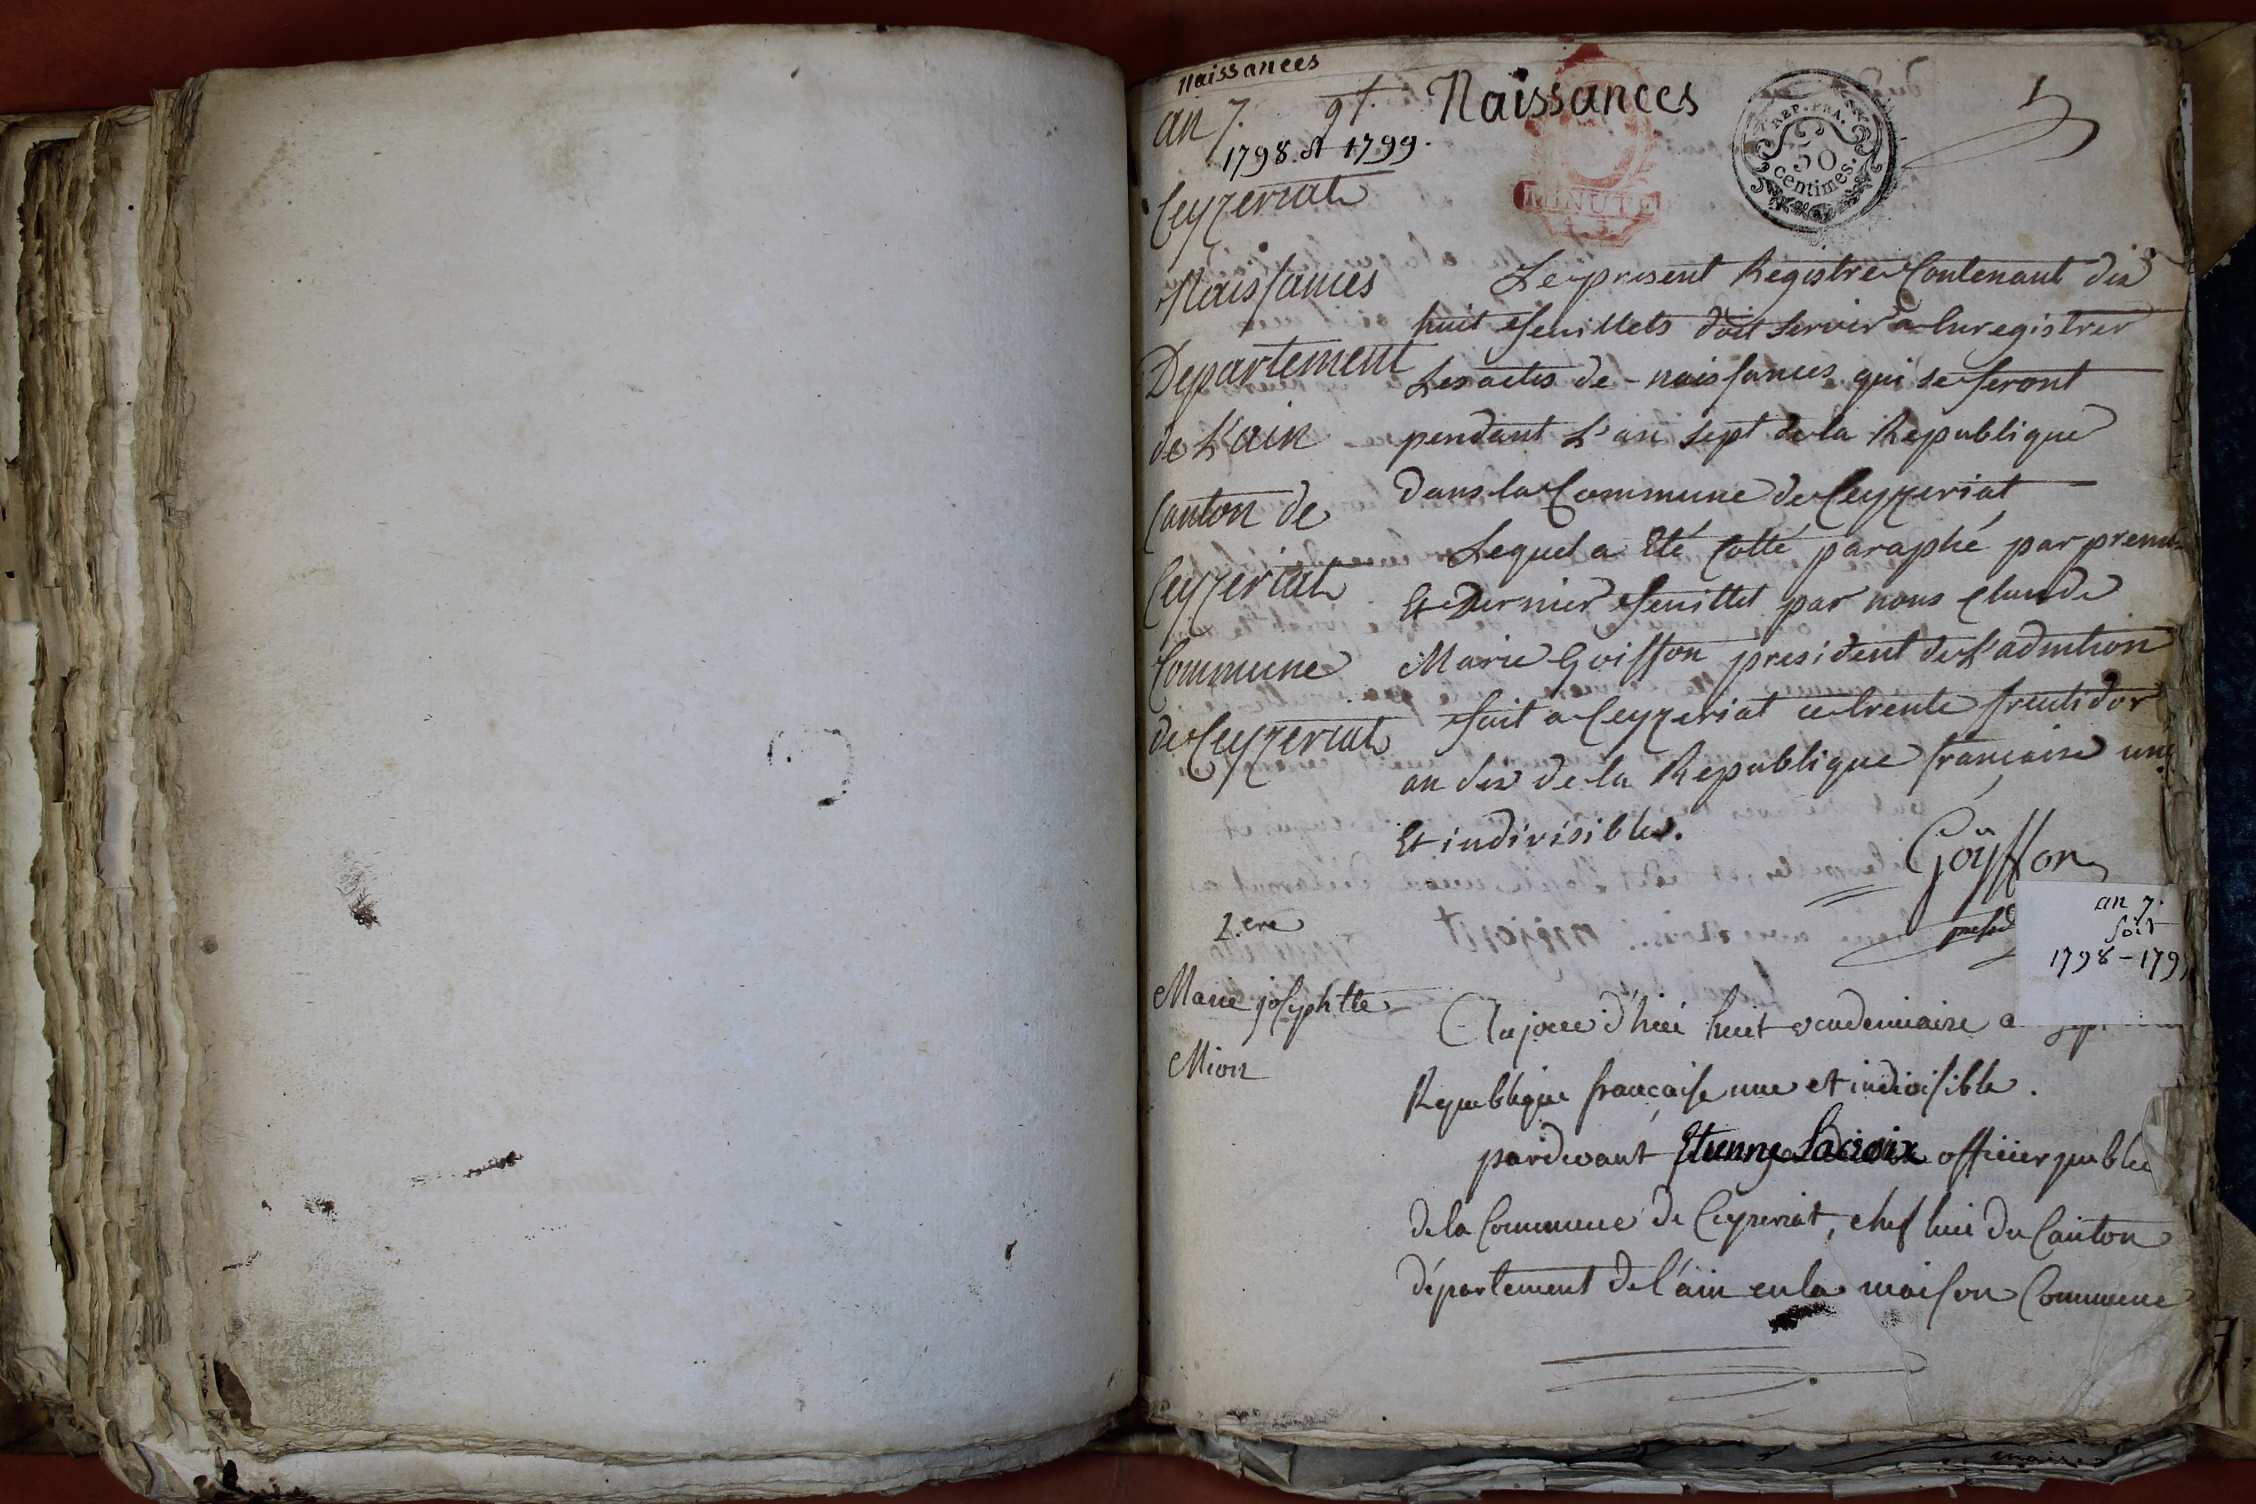 Naissances
an 7.
1798 et 1799.
Ceyzeriat
Naissances
Departement
de L'ain
Canton de
Ceyzeriat
Commune
de Ceyzeriat
1.ere
Marie josephtte
Mion
Naissances
REP. FRA.
50
centimes.
MINUTE
1
Le present Registre Contenant dix
huit feuillets doit servir a Enregistrer
Les actes de naissances qui se feront
pendant L'an sept de la Republique
dans la Commune de Ceyzeriat
Lequel a Eté Cotté paraphé par premier
Et Dernier feuillet par nous Claude
Marie Goiffon president de L'admtion
fait a Ceyzeriat ce trente fructidor
an six de la Republique française une
Et indivisible.
Goÿffon
presid
an 7.
soit
1798 - 179
Aujourd'hui huit vendemiaire a
Republique française une et indivisible.
pardevant Etienne Lacroix officier public
de la Commune de Ceyzeriat, chef lieu du Canton
département de l'ain en la maison Commune
maire